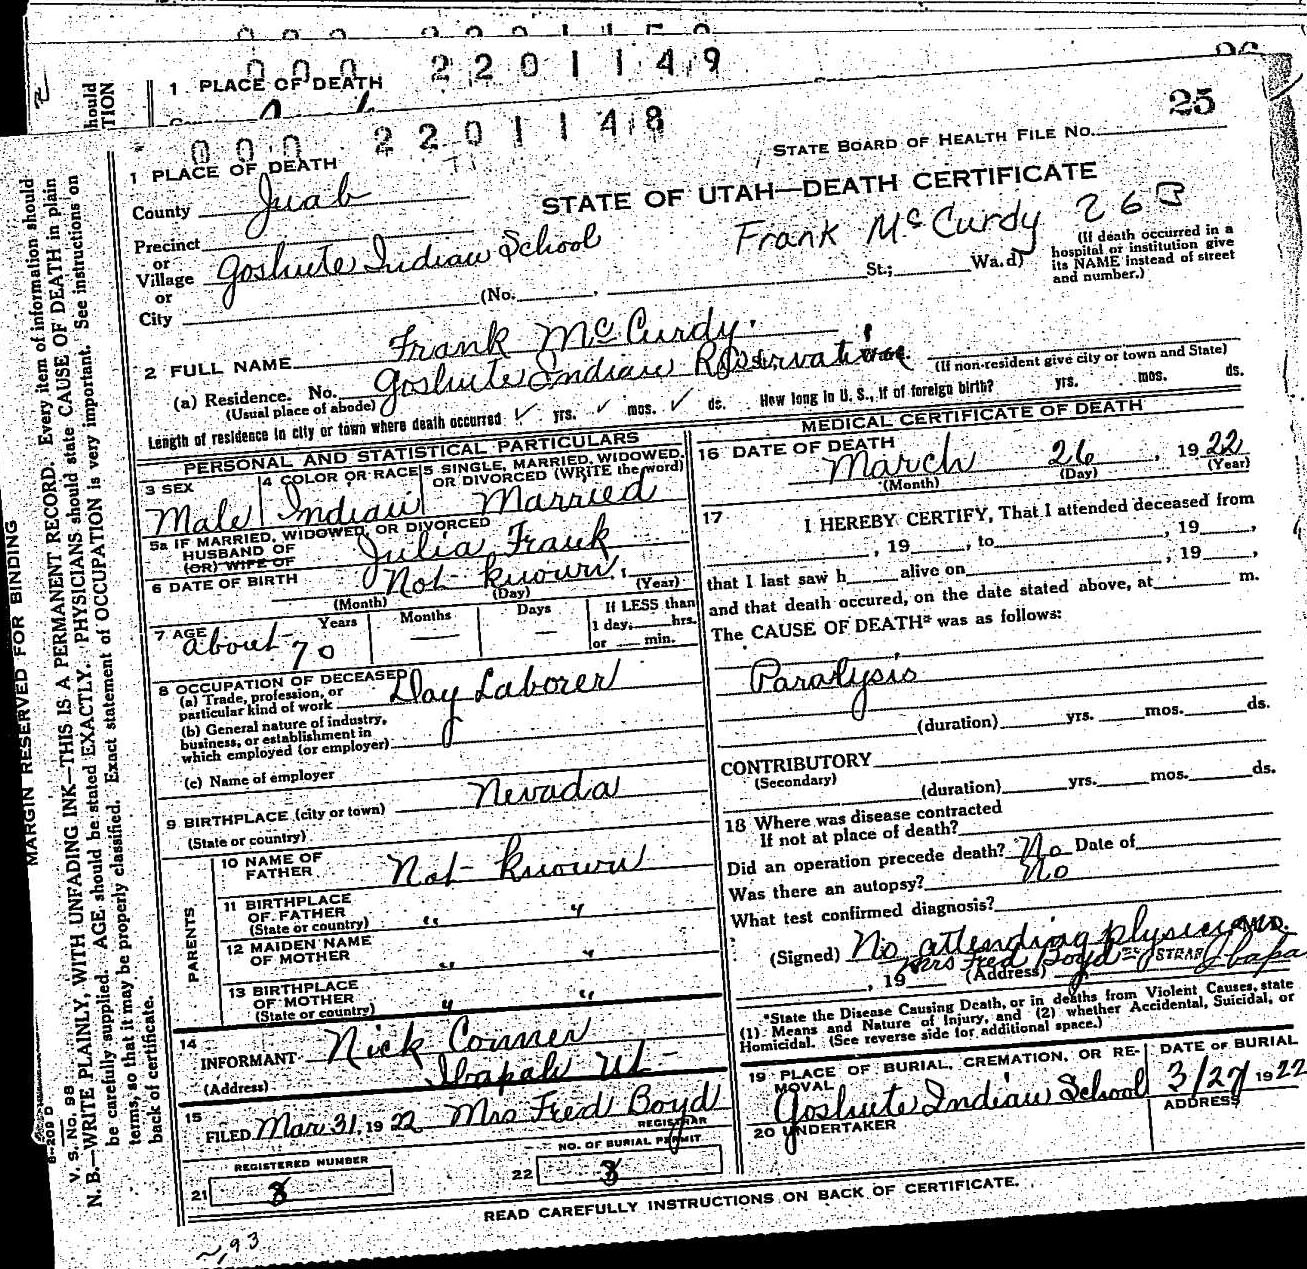 0 0 0 2 2 0 1 1 4 9
1 PLACE OF DEATH
0 0 0 2 2 0 1 1 4 8
25
STATE BOARD OF HEALTH FILE No.
1 PLACE OF DEATH
County Juab
STATE OF UTAH—DEATH CERTIFICATE
Precinct
or
Village Goshute Indian School
Frank McCurdy 263
or
City (No. St.; Ward)
(If death occurred in a
hospital or institution give
its NAME instead of street
and number.)
2 FULL NAME Frank McCurdy.
(a) Residence. No. Goshute Indian Reservation
(Usual place of abode)
(If non-resident give city or town and State)
Length of residence in city or town where death occurred ✓ yrs. ✓ mos. ✓ ds. How long in U. S., if of foreign birth? yrs. mos. ds.
PERSONAL AND STATISTICAL PARTICULARS
3 SEX
Male
4 COLOR OR RACE
Indian
5 SINGLE, MARRIED, WIDOWED,
OR DIVORCED (WRITE the word)
Married
5a IF MARRIED, WIDOWED, OR DIVORCED
HUSBAND OF
(OR) WIFE OF
Julia Frank
6 DATE OF BIRTH Not known.
(Month) (Day) (Year)
7 AGE Years Months Days
about 70 — —
If LESS than
1 day, hrs.
or min.
8 OCCUPATION OF DECEASED
(a) Trade, profession, or
particular kind of work Day Laborer
(b) General nature of industry,
business, or establishment in
which employed (or employer)
(c) Name of employer
9 BIRTHPLACE (city or town) Nevada
(State or country)
PARENTS
10 NAME OF
FATHER Not known
11 BIRTHPLACE
OF FATHER
(State or country) " "
12 MAIDEN NAME
OF MOTHER " "
13 BIRTHPLACE
OF MOTHER
(State or country) " "
14
INFORMANT Nick Conner
(Address) Ibapah Ut-
15
FILED Mar 31, 1922 Mrs Fred Boyd
REGISTRAR
REGISTERED NUMBER
21 8
NO. OF BURIAL PERMIT
22 8
MEDICAL CERTIFICATE OF DEATH
16 DATE OF DEATH
March 26, 1922
(Month) (Day) (Year)
17 I HEREBY CERTIFY, That I attended deceased from
, 19 , to , 19 ,
that I last saw h alive on , 19 ,
and that death occured, on the date stated above, at m.
The CAUSE OF DEATH* was as follows:
Paralysis
(duration) yrs. mos. ds.
CONTRIBUTORY
(Secondary)
(duration) yrs. mos. ds.
18 Where was disease contracted
If not at place of death?
Did an operation precede death? No Date of
Was there an autopsy? No
What test confirmed diagnosis?
(Signed) No attending physician M.D.
Mrs Fred Boyd
, 19 (Address) Ibapah
*State the Disease Causing Death, or in deaths from Violent Causes, state
(1) Means and Nature of Injury, and (2) whether Accidental, Suicidal, or
Homicidal. (See reverse side for additional space.)
19 PLACE OF BURIAL, CREMATION, OR RE-
MOVAL
Goshute Indian School
DATE OF BURIAL
3/27 1922
20 UNDERTAKER
ADDRESS
READ CAREFULLY INSTRUCTIONS ON BACK OF CERTIFICATE.
MARGIN RESERVED FOR BINDING
V. S. No. 98
N. B.—WRITE PLAINLY, WITH UNFADING INK—THIS IS A PERMANENT RECORD. Every item of information should
be carefully supplied. AGE should be stated EXACTLY. PHYSICIANS should state CAUSE OF DEATH in plain
terms, so that it may be properly classified. Exact statement of OCCUPATION is very important. See instructions on
back of certificate.